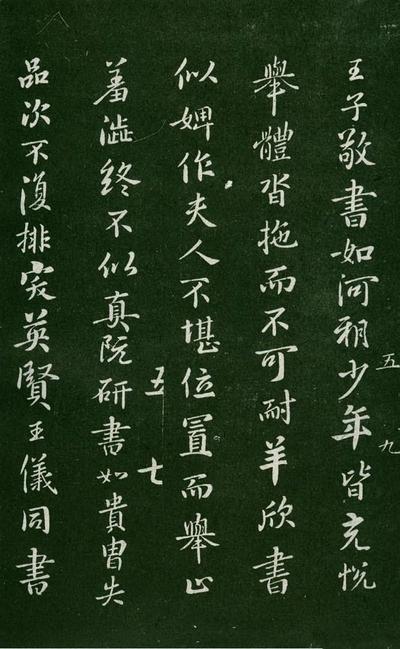 王子敬書如河朔少年皆充悅
五九
舉體沓拖而不可耐羊欣書
似婢作夫人不堪位置而舉止
五七
羞澁終不似真阮研書如貴胄失
品次不復排突英賢王儀同書